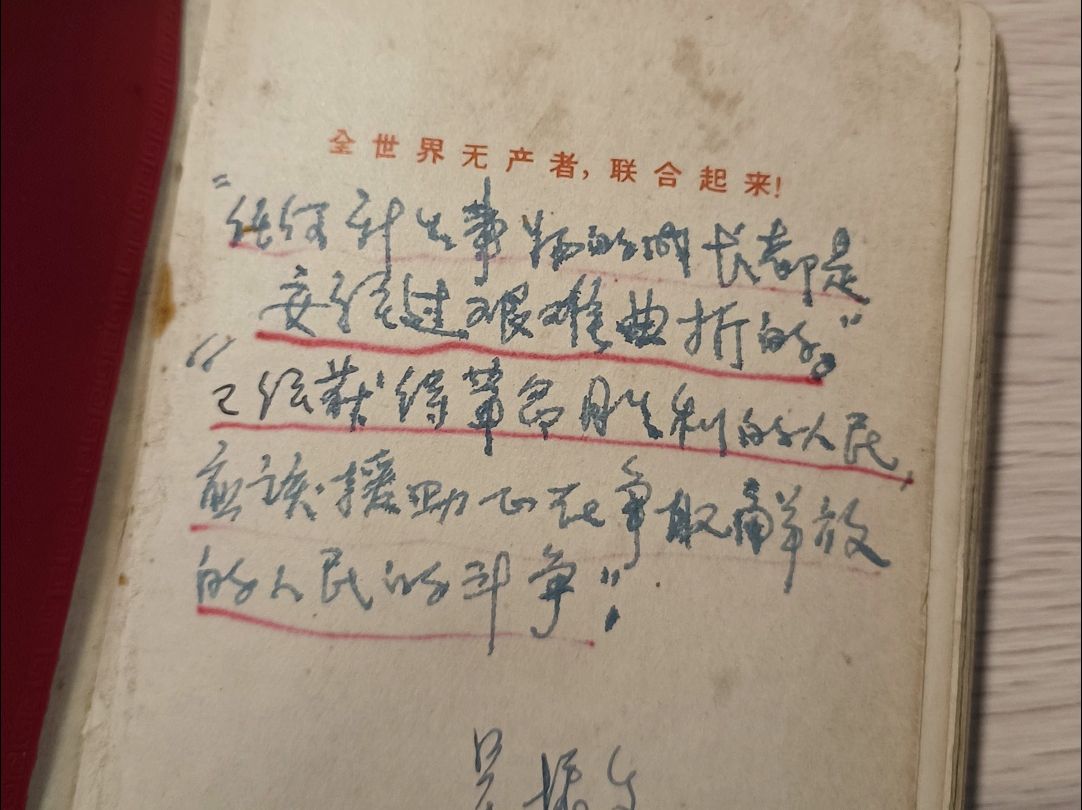 全世界无产者,联合起来!
"任何新生事物的成长都是
要经过艰难曲折的。"
"已经获得革命胜利的人民,
应该援助正在争取解放
的人民的斗争",
吴振生